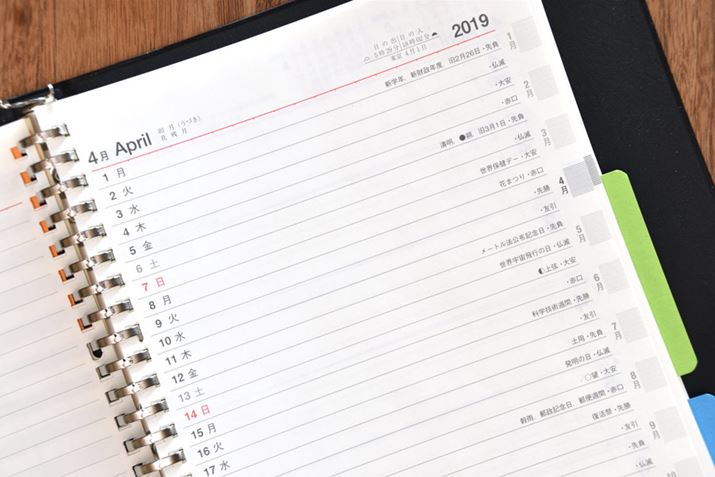 2019
日の出 日の入
5時29分 18時02分
東京 4月1日
4月 April 卯月（うづき） 花残月
1 月 新学年、新財政年度、旧2月26日・先負
2 火 ・仏滅
3 水 ・大安
4 木 ・赤口
5 金 清明、●朔、旧3月1日・先負
6 土 ・仏滅
7 日 世界保健デー・大安
8 月 花まつり・赤口
9 火 ・先勝
10 水 ・友引
11 木 メートル法公布記念日・先負
12 金 世界宇宙飛行の日・仏滅
13 土 ◐上弦・大安
14 日 ・赤口
15 月 科学技術週間・先勝
16 火 ・友引
17 水 土用・先負
発明の日・仏滅
○望・大安
穀雨、郵政記念日、郵便週間・赤口
復活祭・先勝
・友引
・先負
・仏滅
1月
2月
3月
4月
5月
6月
7月
8月
9月